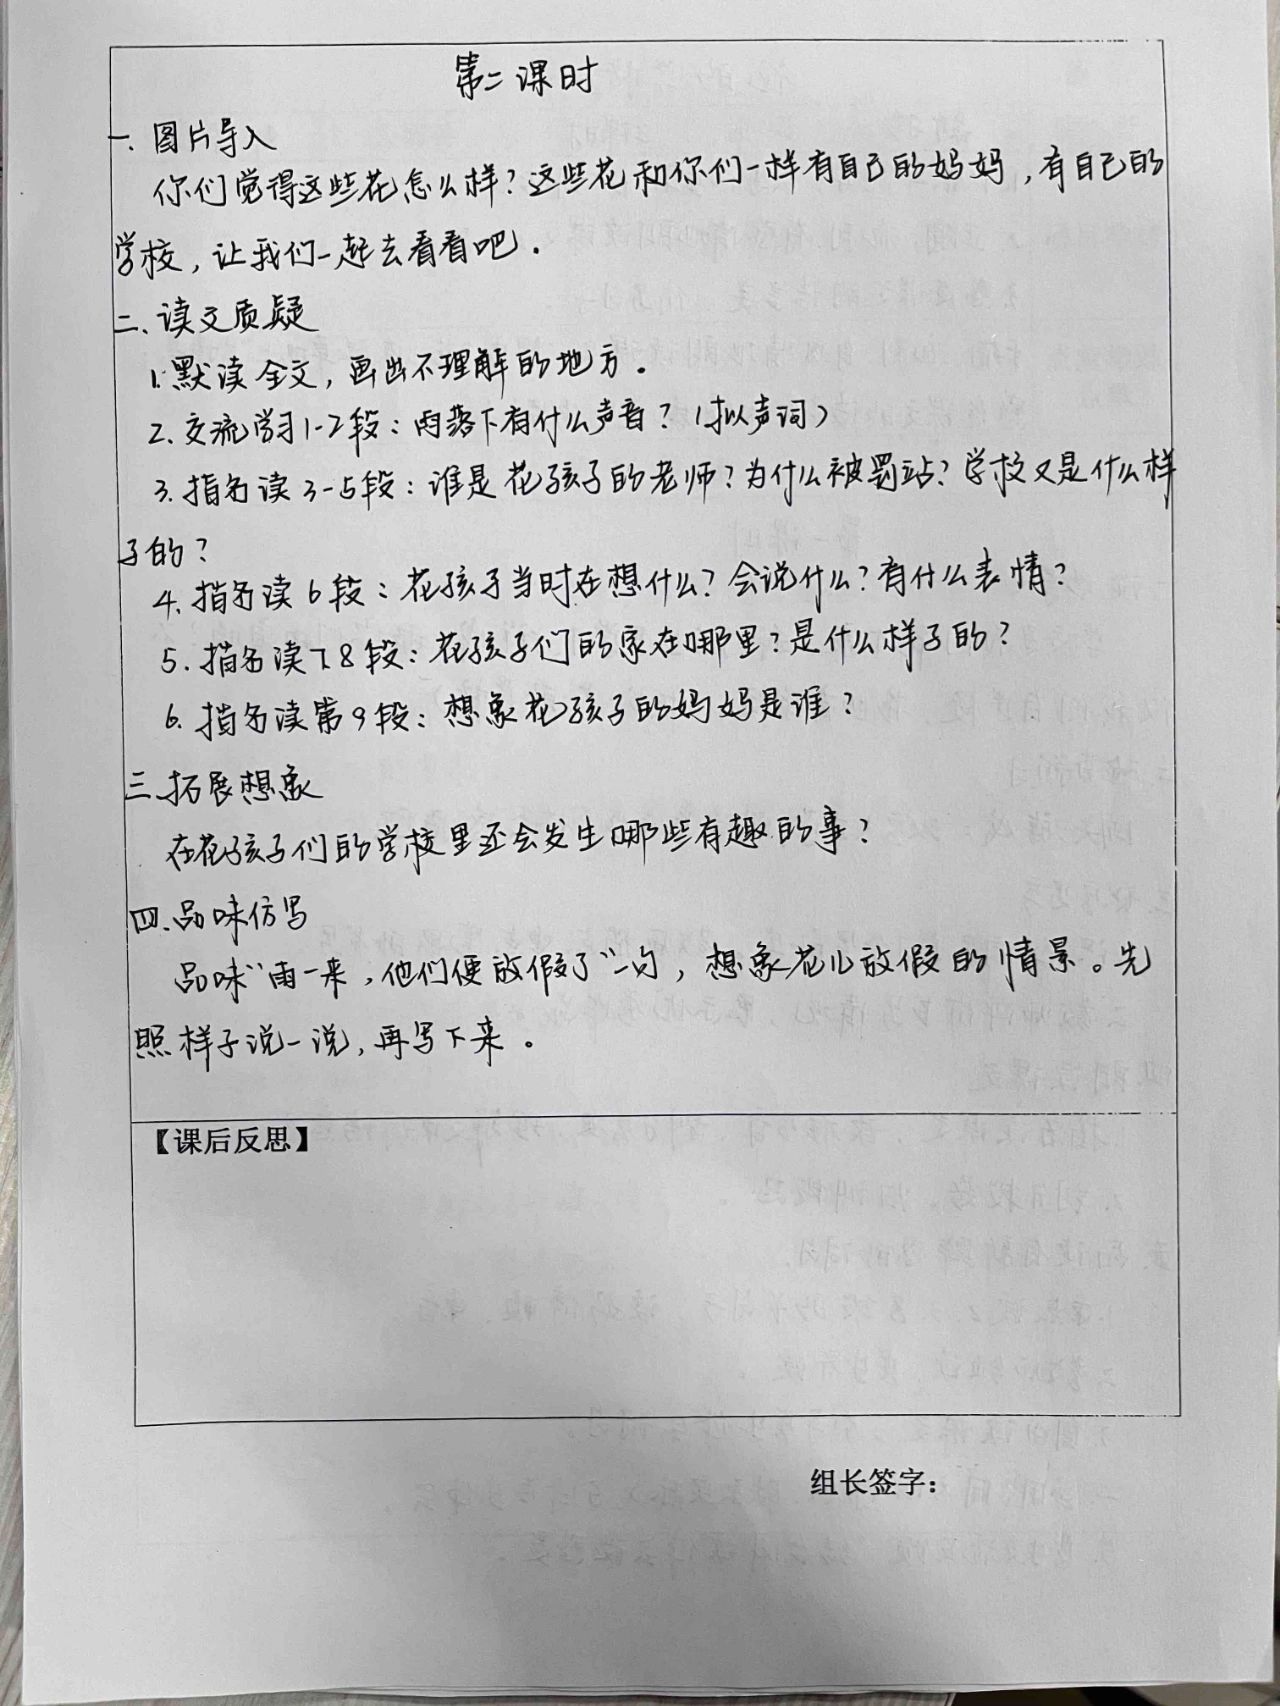 第二课时
一、图片导入
你们觉得这些花怎么样?这些花和你们一样有自己的妈妈,有自己的
学校,让我们一起去看看吧.
二、读文质疑
1.默读全文,画出不理解的地方.
2.交流学习1-2段:雨落下有什么声音?(拟声词)
3.指名读3-5段:谁是花孩子的老师?为什么被罚站?学校又是什么样
子的?
4.指名读6段:花孩子当时在想什么?会说什么?有什么表情?
5.指名读7.8段:花孩子们的家在哪里?是什么样子的?
6.指名读第9段:想象花孩子的妈妈是谁?
三.拓展想象
在花孩子们的学校里还会发生哪些有趣的事?
四.品味仿写
品味"雨一来,他们便放假了"一句,想象花儿放假的情景。先
照样子说一说,再写下来。
【课后反思】
组长签字: